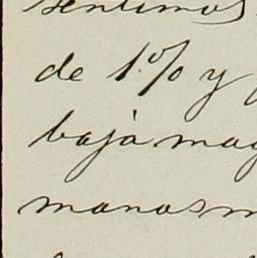 sentimos
de 1% y
baja may
manas m